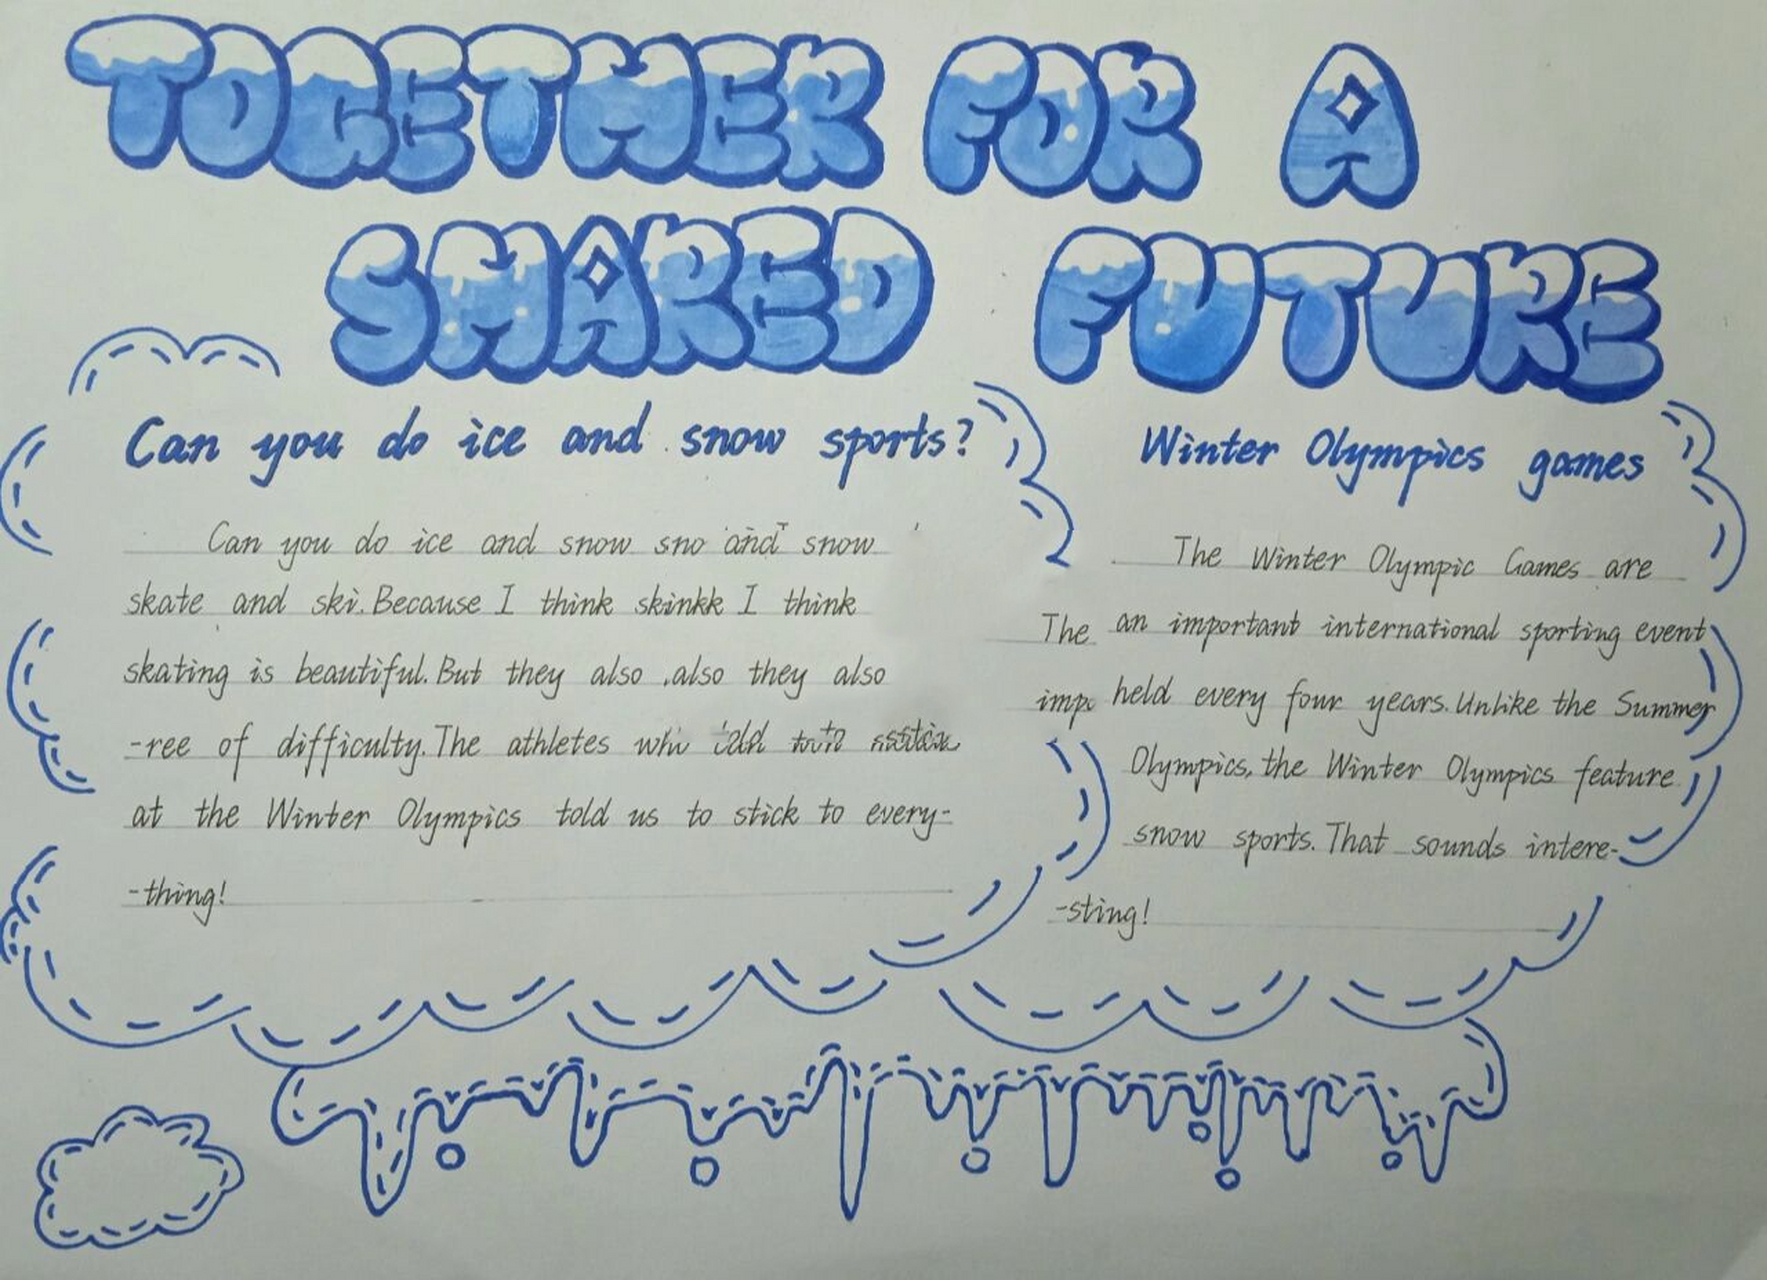 TOGETHER FOR A
SHARED FUTURE
Can you do ice and snow sports?
Can you do ice and snow sno and snow
skate and ski. Because I think skinkk I think
skating is beautiful. But they also .also they also
-ree of difficulty. The athletes
at the Winter Olympics told us to stick to every-
-thing!
Winter Olympics games
The Winter Olympic Games are
The an important international sporting event
imp held every four years. Unlike the Summer
Olympics, the Winter Olympics feature
snow sports. That sounds intere-
-sting!